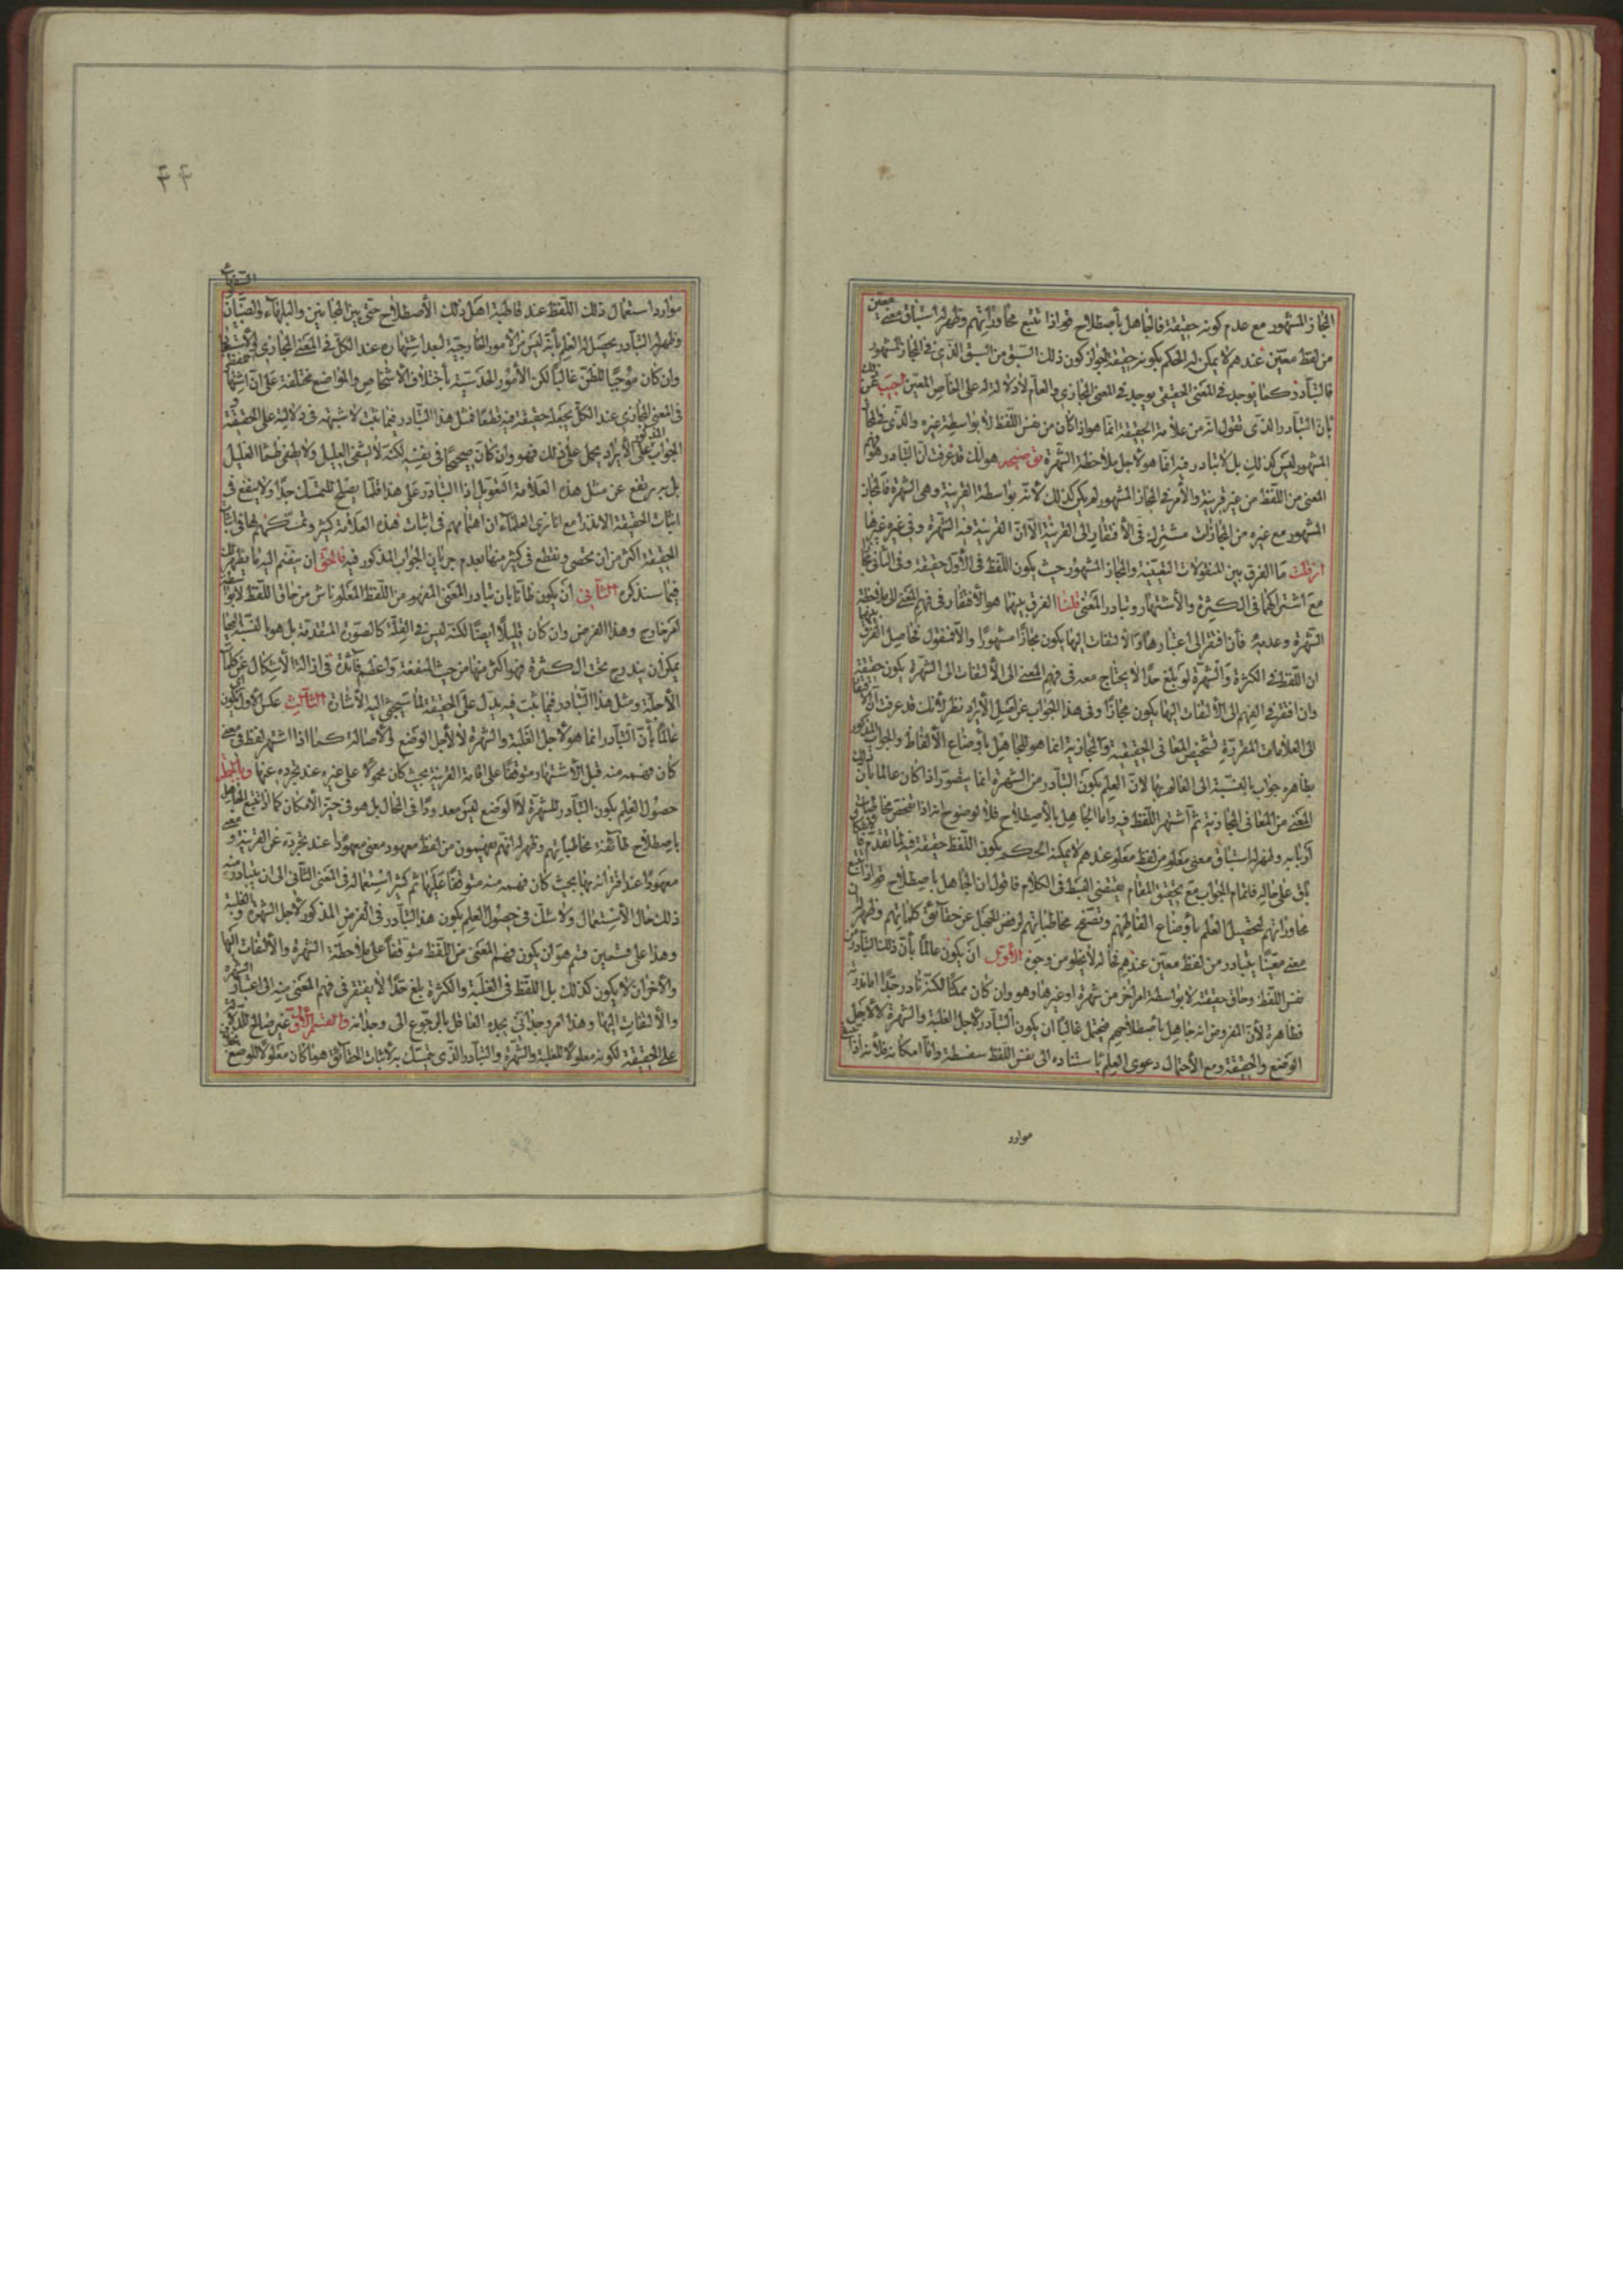 المجاز المشهور مع عدم كونه حقيقة فالجاهل بأصطلاح قوم اذا تتبع محاوراتهم وظهر له استباق معنى معين
من لفظ معين عندهم لا يمكن له الحكم بكونه حقيقة لجواز كون ذلك السبق من السبق الذي في المجاز المشهور
فالتبادر كما يوجد في المعنى الحقيقى يوجد في المعنى المجازي والعام لا دلالة له على الخاص المعين اجيب عن ذلك
بأن التبادر الذي نقول انه من علامة الحقيقة انما هو اذا كان من نفس اللفظ لا بواسطة غيره والذي في المجاز
المشهور ليس كذلك بل لا تبادر فيه انما هو لأجل ملاحظة الشهرة هو انك قد عرفت ان التبادر هو فهم
المعنى من اللفظ من غير قرينة والأمر في المجاز المشهور لم يكن كذلك لأنه بواسطة القرينة وهى الشهرة فالمجاز
المشهور مع غيره من المجازات مشترك في الأفتقار الى القرينة الا ان القرينة فيه الشهرة وفي غيره غيرها
ان قلت ما الفرق بين المنقولات التعينية والمجاز المشهور حيث يكون اللفظ في الأول حقيقة وفي الثاني مجازا
مع اشتراكهما في الكثرة والأشتهار وتبادر المعنى قلنا الفرق بينهما هو الأفتقار في فهم المعنى الى ملاحظة
الشهرة وعدمه فأن افتقر الى اعتبارها والألتفات اليها يكون مجازا مشهورا والا فمنقول فحاصل الفرق بينهما
ان اللفظ في الكثرة والشهرة لو بلغ حدا لا يحتاج معه في فهم المعنى الى الألتفات الى الشهرة يكون حقيقة
وان افتقر في الفهم الى الألتفات اليها يكون مجازا وفي هذا الجواب عن اصل الأيراد نظر لأنك قد عرفت ان الافتقار
الى العلامات المقررة لتشخيص المعانى الحقيقية والمجازية انما هو للجاهل بأوضاع الألفاظ والجواب المذكور
بظاهره جواب بالنسبة الى العالم بها لان العلم بكون التبادر من الشهرة انما يتصور اذا كان عالما بأن ذلك
المعنى من المعانى المجازية ثم اشتهر اللفظ فيه واما الجاهل بالأصطلاح فلا لوضوح انه اذا تفحص مخاطبات
اربابه وظهر له استباق معنى معلوم من لفظ معلوم عندهم لا يمكنه الحكم بكون اللفظ حقيقة فيه لما تقدم
بقى على حاله فاتمام الجواب مع تحقيق المقام يقتضى البسط في الكلام فأقول ان الجاهل بأصطلاح قوم اذا تتبع
محاوراتهم لتحصيل العلم بأوضاع الفاظهم وتصفح مخاطباتهم لرفض الجهل عن حقائق كلماتهم وظهر له ان
معنى معينا يتبادر من لفظ معين عندهم فحاله لا يخلو من وجوه الأول ان يكون عالما بأن ذلك التبادر من
نفس اللفظ وحاق حقيقة لا بواسطة امر اخر من شهرة او غيرها وهو وان كان ممكنا لكنه نادر جدا اما ندرته
فظاهرة لأن المفروض انه جاهل بأصطلاحهم فيحتمل غالبا ان يكون التبادر لأجل الغلبة والشهرة لا لأجل
الوضع والحقيقة ومع الأحتمال دعوى العلم بأستناده الى نفس اللفظ سفسطة واما امكانه فلأنه اذا
موارد
٤٤
موارد استعمال ذلك اللفظ عند قاطبة اهل ذلك الأصطلاح حتى بين المجانين والبلهاء والصبيان
وظهر له التبادر يحصل له العلم بأنه ليس من الأمور الخارجية لبعد اشتهاره عند الكل في المعنى المجازي
وان كان موجبا للظن غالبا لكن الأمور الحدسية بأختلاف الأشخاص والمواضع مختلفة على ان اشتهار
في المعنى المجازي عند الكل يجعله حقيقة فيه قطعا فمثل هذا التبادر فيما ثبت لا شبهة في دلالته على الحقيقة
الجواب المذكور على الأيراد يحمل على ذلك فهو وان كان صحيحا في نفسه لكنه لا يشفى العليل ولا يطفى ظمأ الغليل
بل به يرتفع عن مثل هذه العلامة التعويل اذ التبادر على هذا قلما يصلح للتمسك جدا ولا ينفع في
اثبات الحقيقة الا نادرا مع انا نرى العلماء ان اهتمامهم في اثبات هذه العلامة كثير وتمسكهم بها في اثبات
الحقيقة اكثر من ان يحصى ونقطع في كثير منها بعدم جريان الجواب المذكور فيه فالحق ان ينضم اليه ما يظهر لك
فيما سنذكره الثاني ان يكون ظانا بان تبادر المعنى المفهوم من اللفظ المعلوم ناش من حاق اللفظ لا بواسطة
امر خارج وهذا الفرض وان كان قليلا ايضا لكنه ليس في القلة كالصورة المتقدمة بل هو بالنسبة اليها
يمكن ان يندرج تحت الكثرة فهو اكثر منها من حيث المنفعة واعظم فائدة في ازالة الأشكال عن كلمات
الأجلة ومثل هذا التبادر فيما ثبت فيه يدل على الحقيقة لما سيجئ اليه الأشارة الثالث عكس الأول ان يكون
عالما بأن التبادر انما هو لأجل الغلبة والشهرة لا لأجل الوضع والأصالة كما اذا اشتهر لفظ في معنى
كان فهمه منه قبل الأشتهار متوقفا على اقامة القرينة بحيث كان محمولا على غيره عند تجرده عنها وبالجملة
حصول العلم بكون التبادر للشهرة لا الوضع ليس معدودا في المحال بل هو في حيز الأمكان كما اذا تتبع الجاهل
باصطلاح طائفة مخاطباتهم وظهر له انهم يفهمون من لفظ معهود معنى معهودا عند تجرده عن القرينة ومعنى
معهودا عند اقترانه بها بحيث كان فهمه منه متوقفا عليها ثم كثر استعماله في المعنى الثاني الى ان يتبادر منه
ذلك حال الأستعمال ولا شك في حصول العلم بكون هذا التبادر في الفرض المذكور لأجل الشهرة والغلبة
وهذا على قسمين قسم هو ان يكون فهم المعنى من اللفظ متوقفا على ملاحظة الشهرة والألتفات اليها
والأخر ان لا يكون كذلك بل اللفظ في الغلبة والكثرة بلغ حدا لا يفتقر في فهم المعنى منه الى اعتبار الشهرة
والألتفات اليها وهذا امر وجداني يجده العاقل بالرجوع الى وجدانه والقسم الأول غير صالح للدلالة
على الحقيقة لكونه معلولا للغلبة والشهرة والتبادر الذي يتمسك به لأثبات الحقائق هو ما كان معلولا للوضع